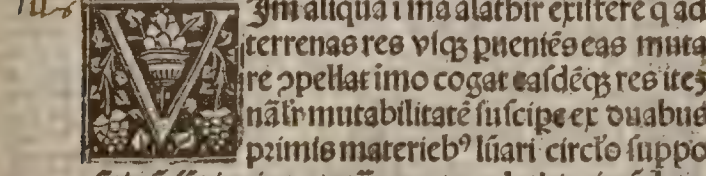 VIm aliquã i ma alatbir exiſtere q ad
terrenas res vſqꝫ pueniẽs eas muta
re ꝯpellat imo cogat eaſdẽqꝫ res iteꝫ
nãlr mutabilitatẽ ſuſcipe ex duabus
primis materiebꝰ lũari circło ſuppo